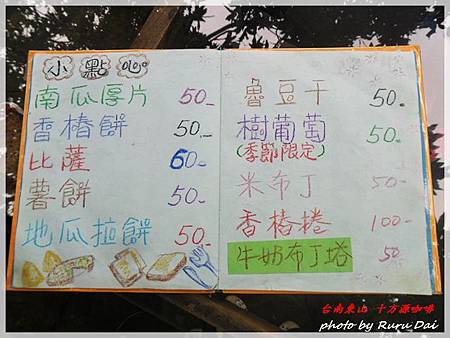 小點心
南瓜厚片 50.-
香椿餅 50.-
比薩 60.-
薯餅 50.-
地瓜拉餅 50.-
魯豆干 50.-
樹葡萄 50.-
(季節限定)
米布丁 50.-
香椿捲 100.-
牛奶布丁塔 50
台南東山 十方源咖啡
photo by Ruru Dai